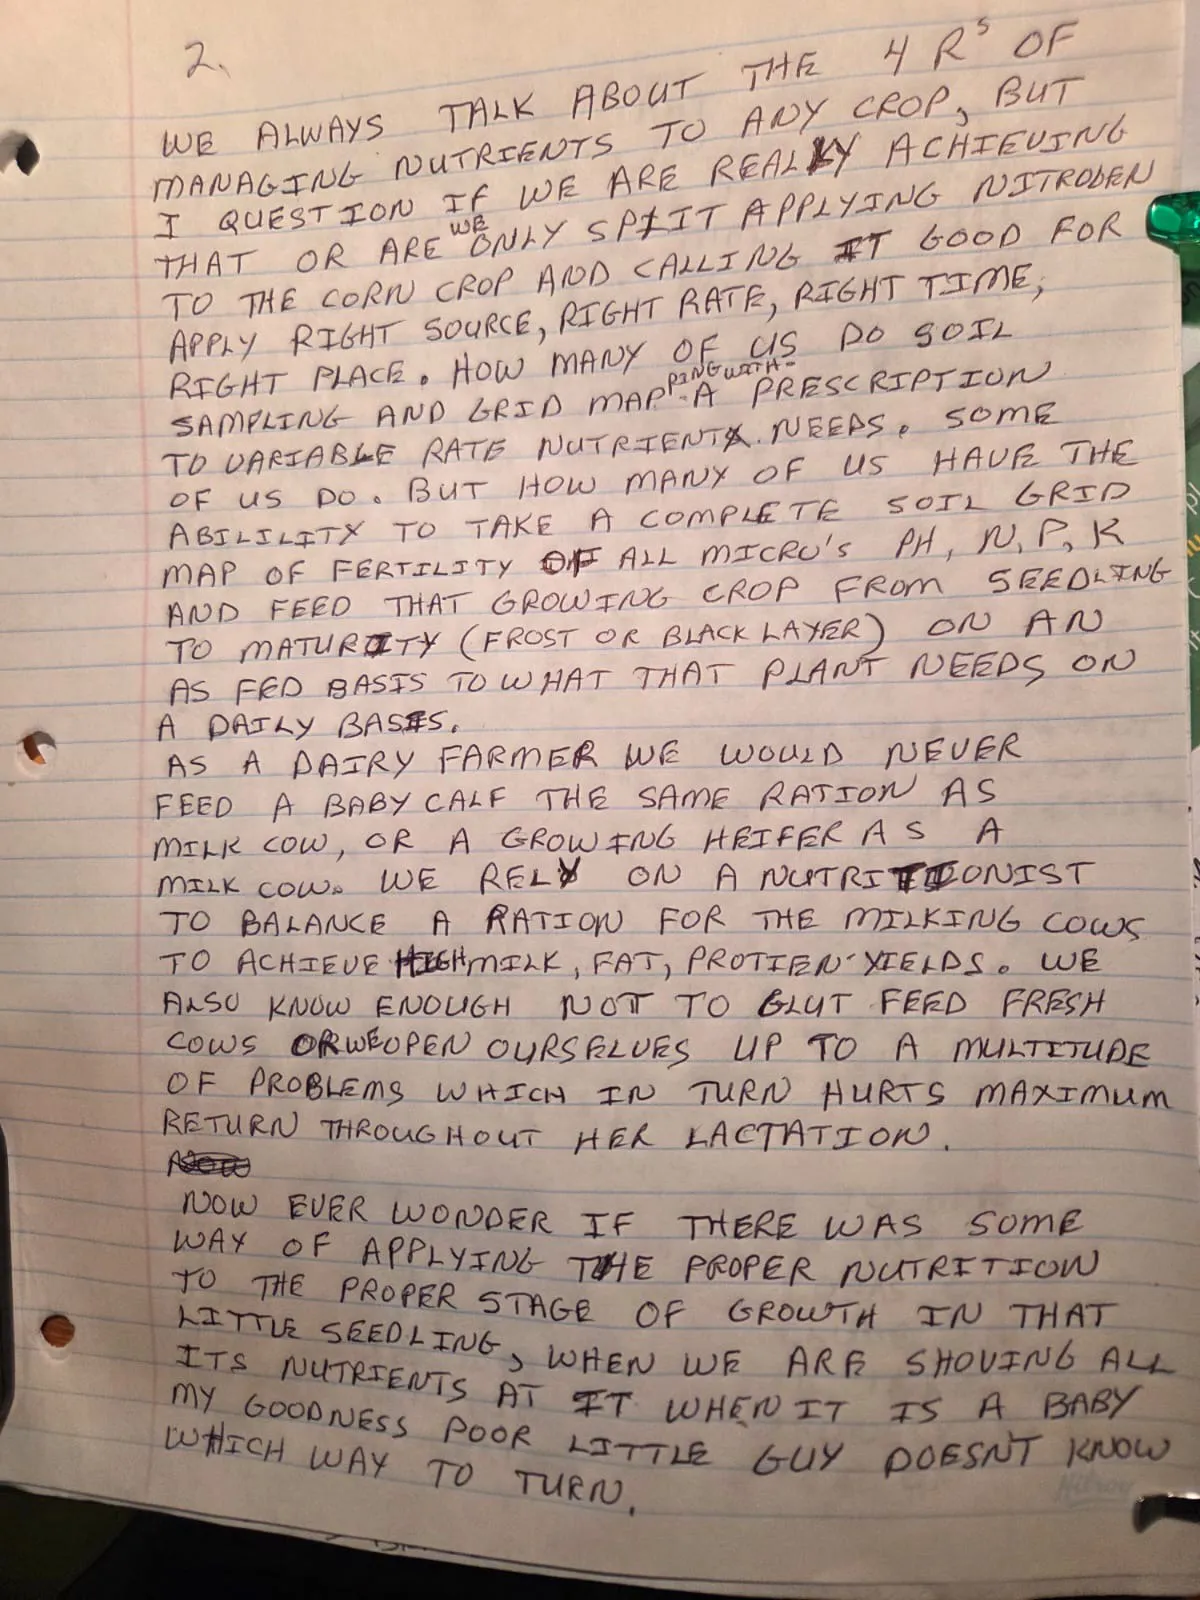 2.
WE ALWAYS TALK ABOUT THE 4 R'S OF
MANAGING NUTRIENTS TO ANY CROP, BUT
I QUESTION IF WE ARE REALLY ACHIEVING
THAT OR ARE WE ONLY SPLIT APPLYING NITROGEN
TO THE CORN CROP AND CALLING IT GOOD FOR
APPLY RIGHT SOURCE, RIGHT RATE, RIGHT TIME,
RIGHT PLACE. HOW MANY OF US DO SOIL
SAMPLING AND GRID MAPPING WITH A PRESCRIPTION
TO VARIABLE RATE NUTRIENT NEEDS. SOME
OF US DO. BUT HOW MANY OF US HAVE THE
ABILILITY TO TAKE A COMPLETE SOIL GRID
MAP OF FERTILITY OF ALL MICRO'S PH, N, P, K
AND FEED THAT GROWING CROP FROM SEEDLING
TO MATURITY (FROST OR BLACK LAYER) ON AN
AS FED BASIS TO WHAT THAT PLANT NEEDS ON
A DAILY BASIS.
AS A DAIRY FARMER WE WOULD NEVER
FEED A BABY CALF THE SAME RATION AS
MILK COW, OR A GROWING HEIFER AS A
MILK COW. WE RELY ON A NUTRITIONIST
TO BALANCE A RATION FOR THE MILKING COWS
TO ACHIEVE HIGH MILK, FAT, PROTIEN YIELDS. WE
ALSO KNOW ENOUGH NOT TO GLUT FEED FRESH
COWS OR WE OPEN OURSELVES UP TO A MULTITUDE
OF PROBLEMS WHICH IN TURN HURTS MAXIMUM
RETURN THROUGHOUT HER LACTATION.
NOW EVER WONDER IF THERE WAS SOME
WAY OF APPLYING THE PROPER NUTRITION
TO THE PROPER STAGE OF GROWTH IN THAT
LITTLE SEEDLING, WHEN WE ARE SHOVING ALL
ITS NUTRIENTS AT IT WHEN IT IS A BABY
MY GOODNESS POOR LITTLE GUY DOESN'T KNOW
WHICH WAY TO TURN.